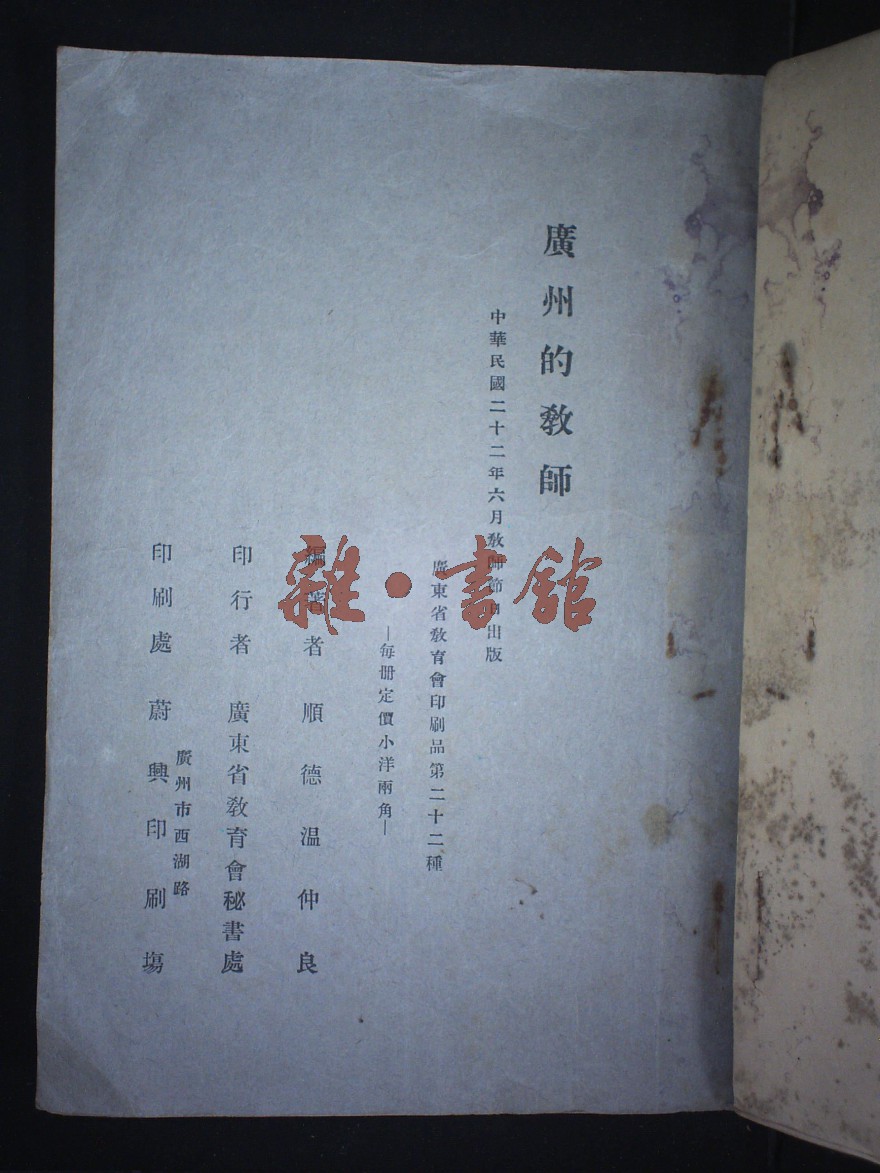 廣州的教師
中華民國二十二年六月教師節日出版
廣東省教育會印刷品第二十二種
—每册定價小洋兩角—
編著者 順德温仲良
印行者 廣東省教育會秘書處
廣州市西湖路
印刷處 蔚興印刷塲
雜·書館